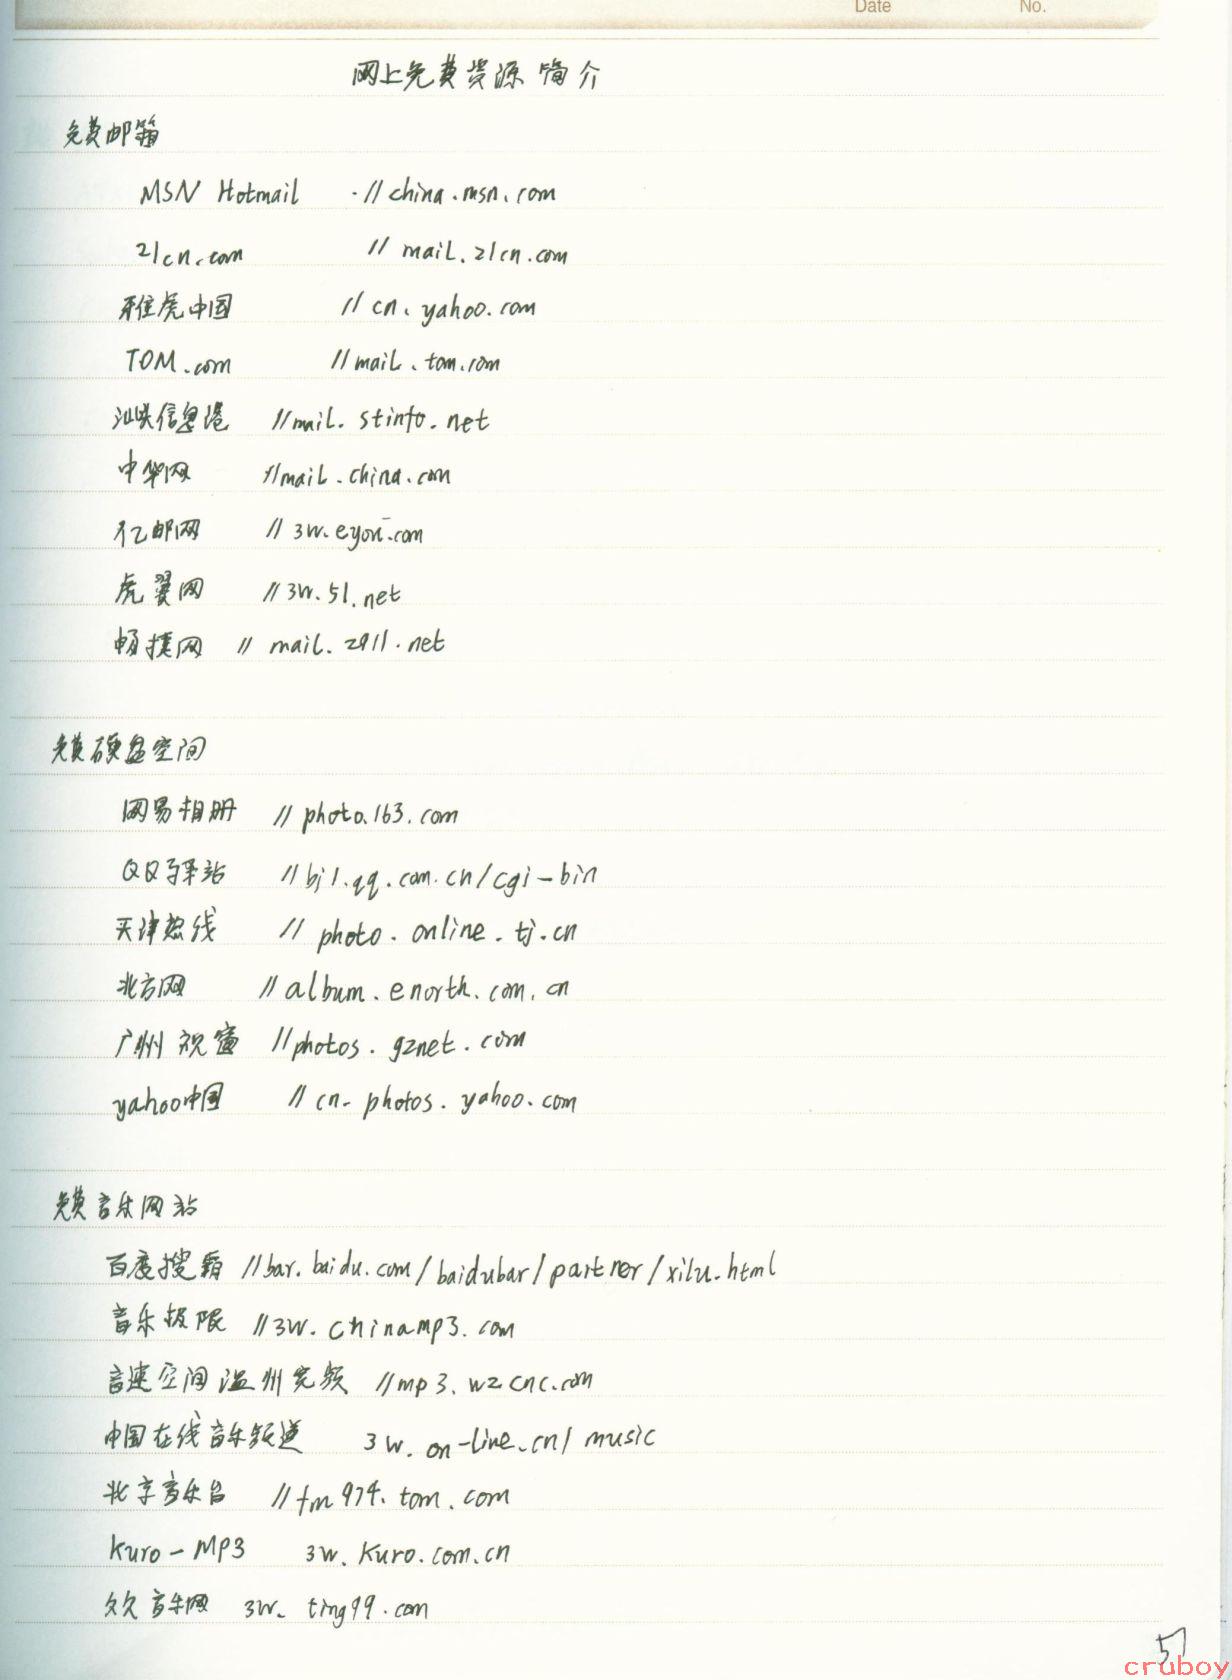 Date No.
网上免费资源简介
免费邮箱
MSN Hotmail ·//china.msn.com
21cn.com // mail.21cn.com
雅虎中国 //cn.yahoo.com
TOM.com //mail.tom.com
汕头信息港 //mail.stinfo.net
中华网 //mail.china.com
亿邮网 //3w.eyou.com
虎翼网 //3w.51.net
畅捷网 // mail.2911.net
免费硬盘空间
网易相册 //photo.163.com
QQ驿站 //bj1.qq.com.cn/cgi-bin
天津热线 // photo.online.tj.cn
北方网 //album.enorth.com.cn
广州视窗 //photos.gznet.com
yahoo中国 //cn-photos.yahoo.com
免费音乐网站
百度搜霸 //bar.baidu.com/baidubar/partner/xilu.html
音乐极限 //3w.chinamp3.com
音速空间温州宽频 //mp3.wzcnc.com
中国在线音乐频道 3w.on-line.cn/music
北京音乐台 //fm974.tom.com
Kuro-MP3 3w.Kuro.com.cn
久久音乐网 3w.ting99.com
51
cruboy